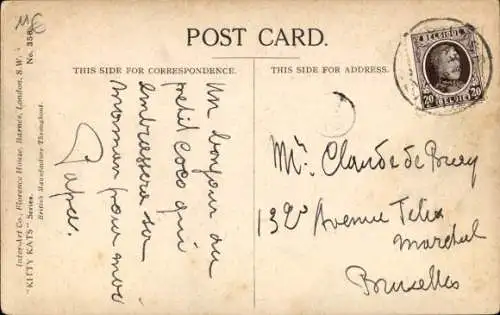 POST CARD.
THIS SIDE FOR CORRESPONDENCE.
THIS SIDE FOR ADDRESS.
Inter-Art Co., Florence House, Barnes, London, S.W.
"KITTY KATS" Series. No. 356
British Manufacture Throughout.
Un bonjour du
petit Coco qui
embrassera sa
maman pour moi
Papa.
BELGIQUE
20 BELGIË 20
Mr. Claude de
132 Avenue Felix
Marchal
Bruxelles